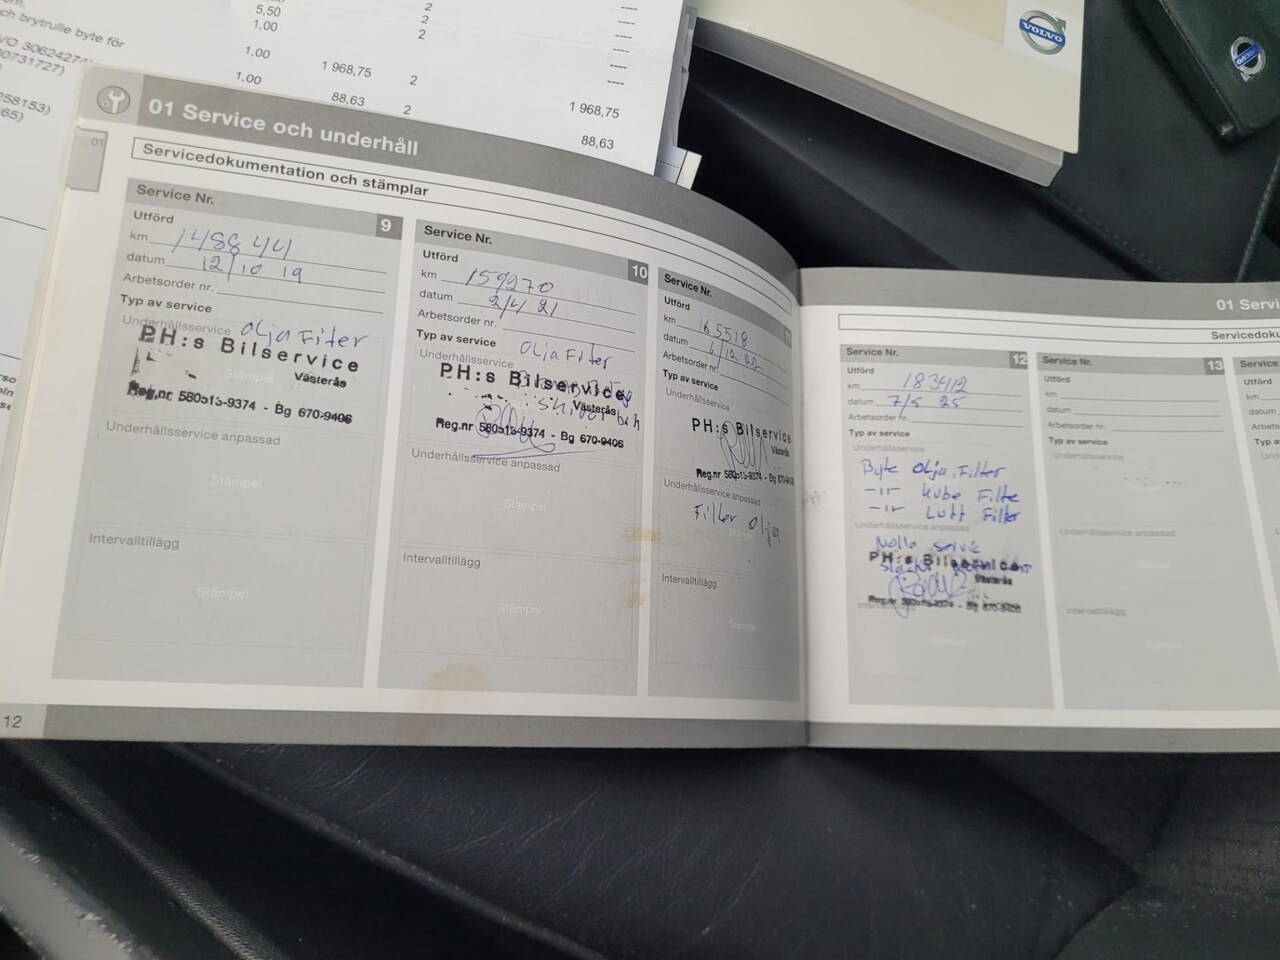 ch brytrulle byte för
VO 30624274
30731727)
258153)
65)
5,50 2
1,00 2
2
1,00 1 968,75 2 1 968,75
1,00 88,63 2 88,63
VOLVO
01 Service och underhåll
01
Servicedokumentation och stämplar
Service Nr. 9
Utförd
km 148844
datum 12/10 19
Arbetsorder nr.
Typ av service
Underhållsservice Olja Filter
PH:s Bilservice
Stämpel
Västerås
Reg.nr 580513-9374 - Bg 670-9406
Underhållsservice anpassad
Stämpel
Intervalltillägg
Stämpel
12
Service Nr. 10
Utförd
km 159270
datum 2/4 21
Arbetsorder nr.
Typ av service
Olja Filter
Underhållsservice
PH:s Bilservice
Västerås
Reg.nr 580513-9374 - Bg 670-9406
Underhållsservice anpassad
Stämpel
Intervalltillägg
Stämpel
Service Nr.
Utförd
km 165518
datum
Arbetsorder nr.
Typ av service
Underhållsservice
PH:s Bilservice
Västerås
Reg.nr 580513-9374 - Bg 670-
Underhållsservice anpassad
Filter Olja
Intervalltillägg
Stämpel
01 Servi
Servicedoku
Service Nr. 12
Utförd
km 183412
datum 7/5 25
Arbetsorder nr.
Typ av service
Underhållsservice
Byte Olja. Filter
-11- kube Filte
-11- Luft Filter
Underhållsservice anpassad
Nolla servic
PH:s Bilservice
Västerås
Reg.nr 580513-9374 - Bg 670-9406
Stämpel
Service Nr. 13
Utförd
km
datum
Arbetsorder nr.
Typ av service
Underhållsservice
Underhållsservice anpassad
Stämpel
Intervalltillägg
Stämpel
Service
Utförd
km
datum
Arbetsor
Typ av